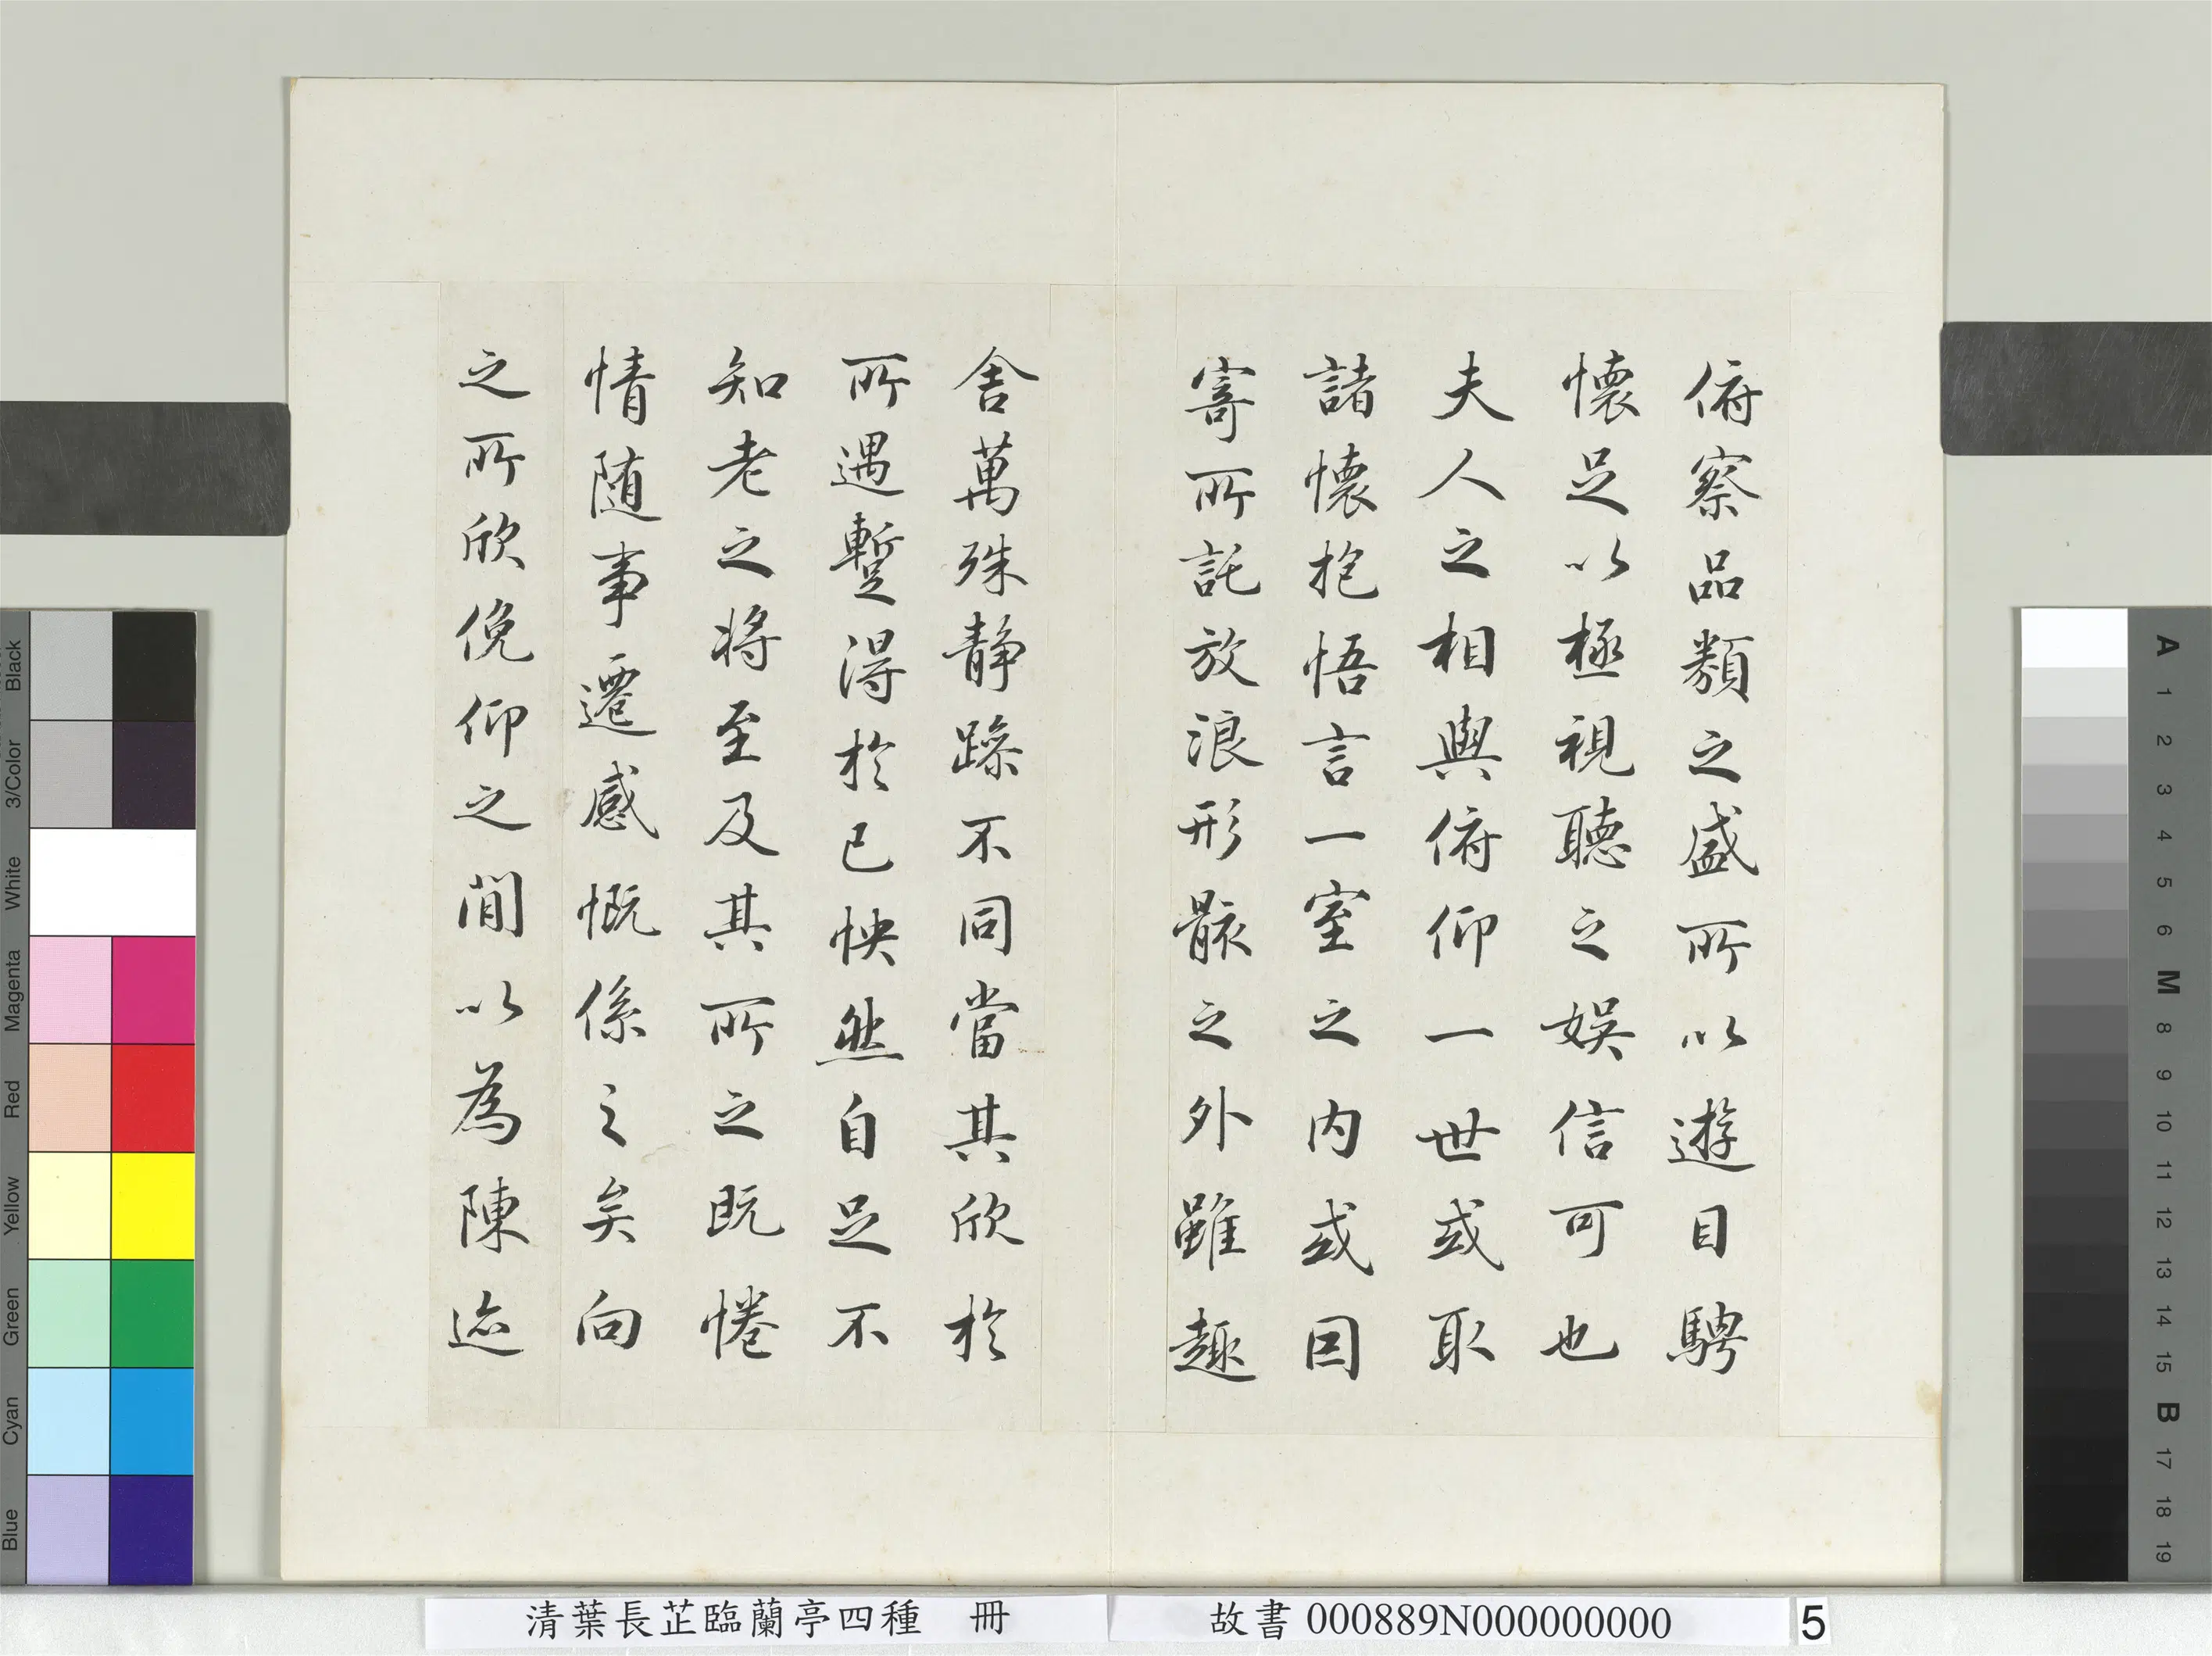 俯察品類之盛所以遊目騁
懷足以極視聽之娛信可也
夫人之相與俯仰一世或取
諸懷抱悟言一室之內或因
寄所託放浪形骸之外雖趣
舍萬殊靜躁不同當其欣於
所遇暫得於己怏然自足不
知老之將至及其所之既惓
情随事遷感慨係之矣向
之所欣俛仰之間以為陳迹
清葉長芷臨蘭亭四種 冊
故書 000889N000000000
5
Black
3/Color
White
Magenta
Red
Yellow
Green
Cyan
Blue
A
1
2
3
4
5
6
M
8
9
10
11
12
13
14
15
B
17
18
19